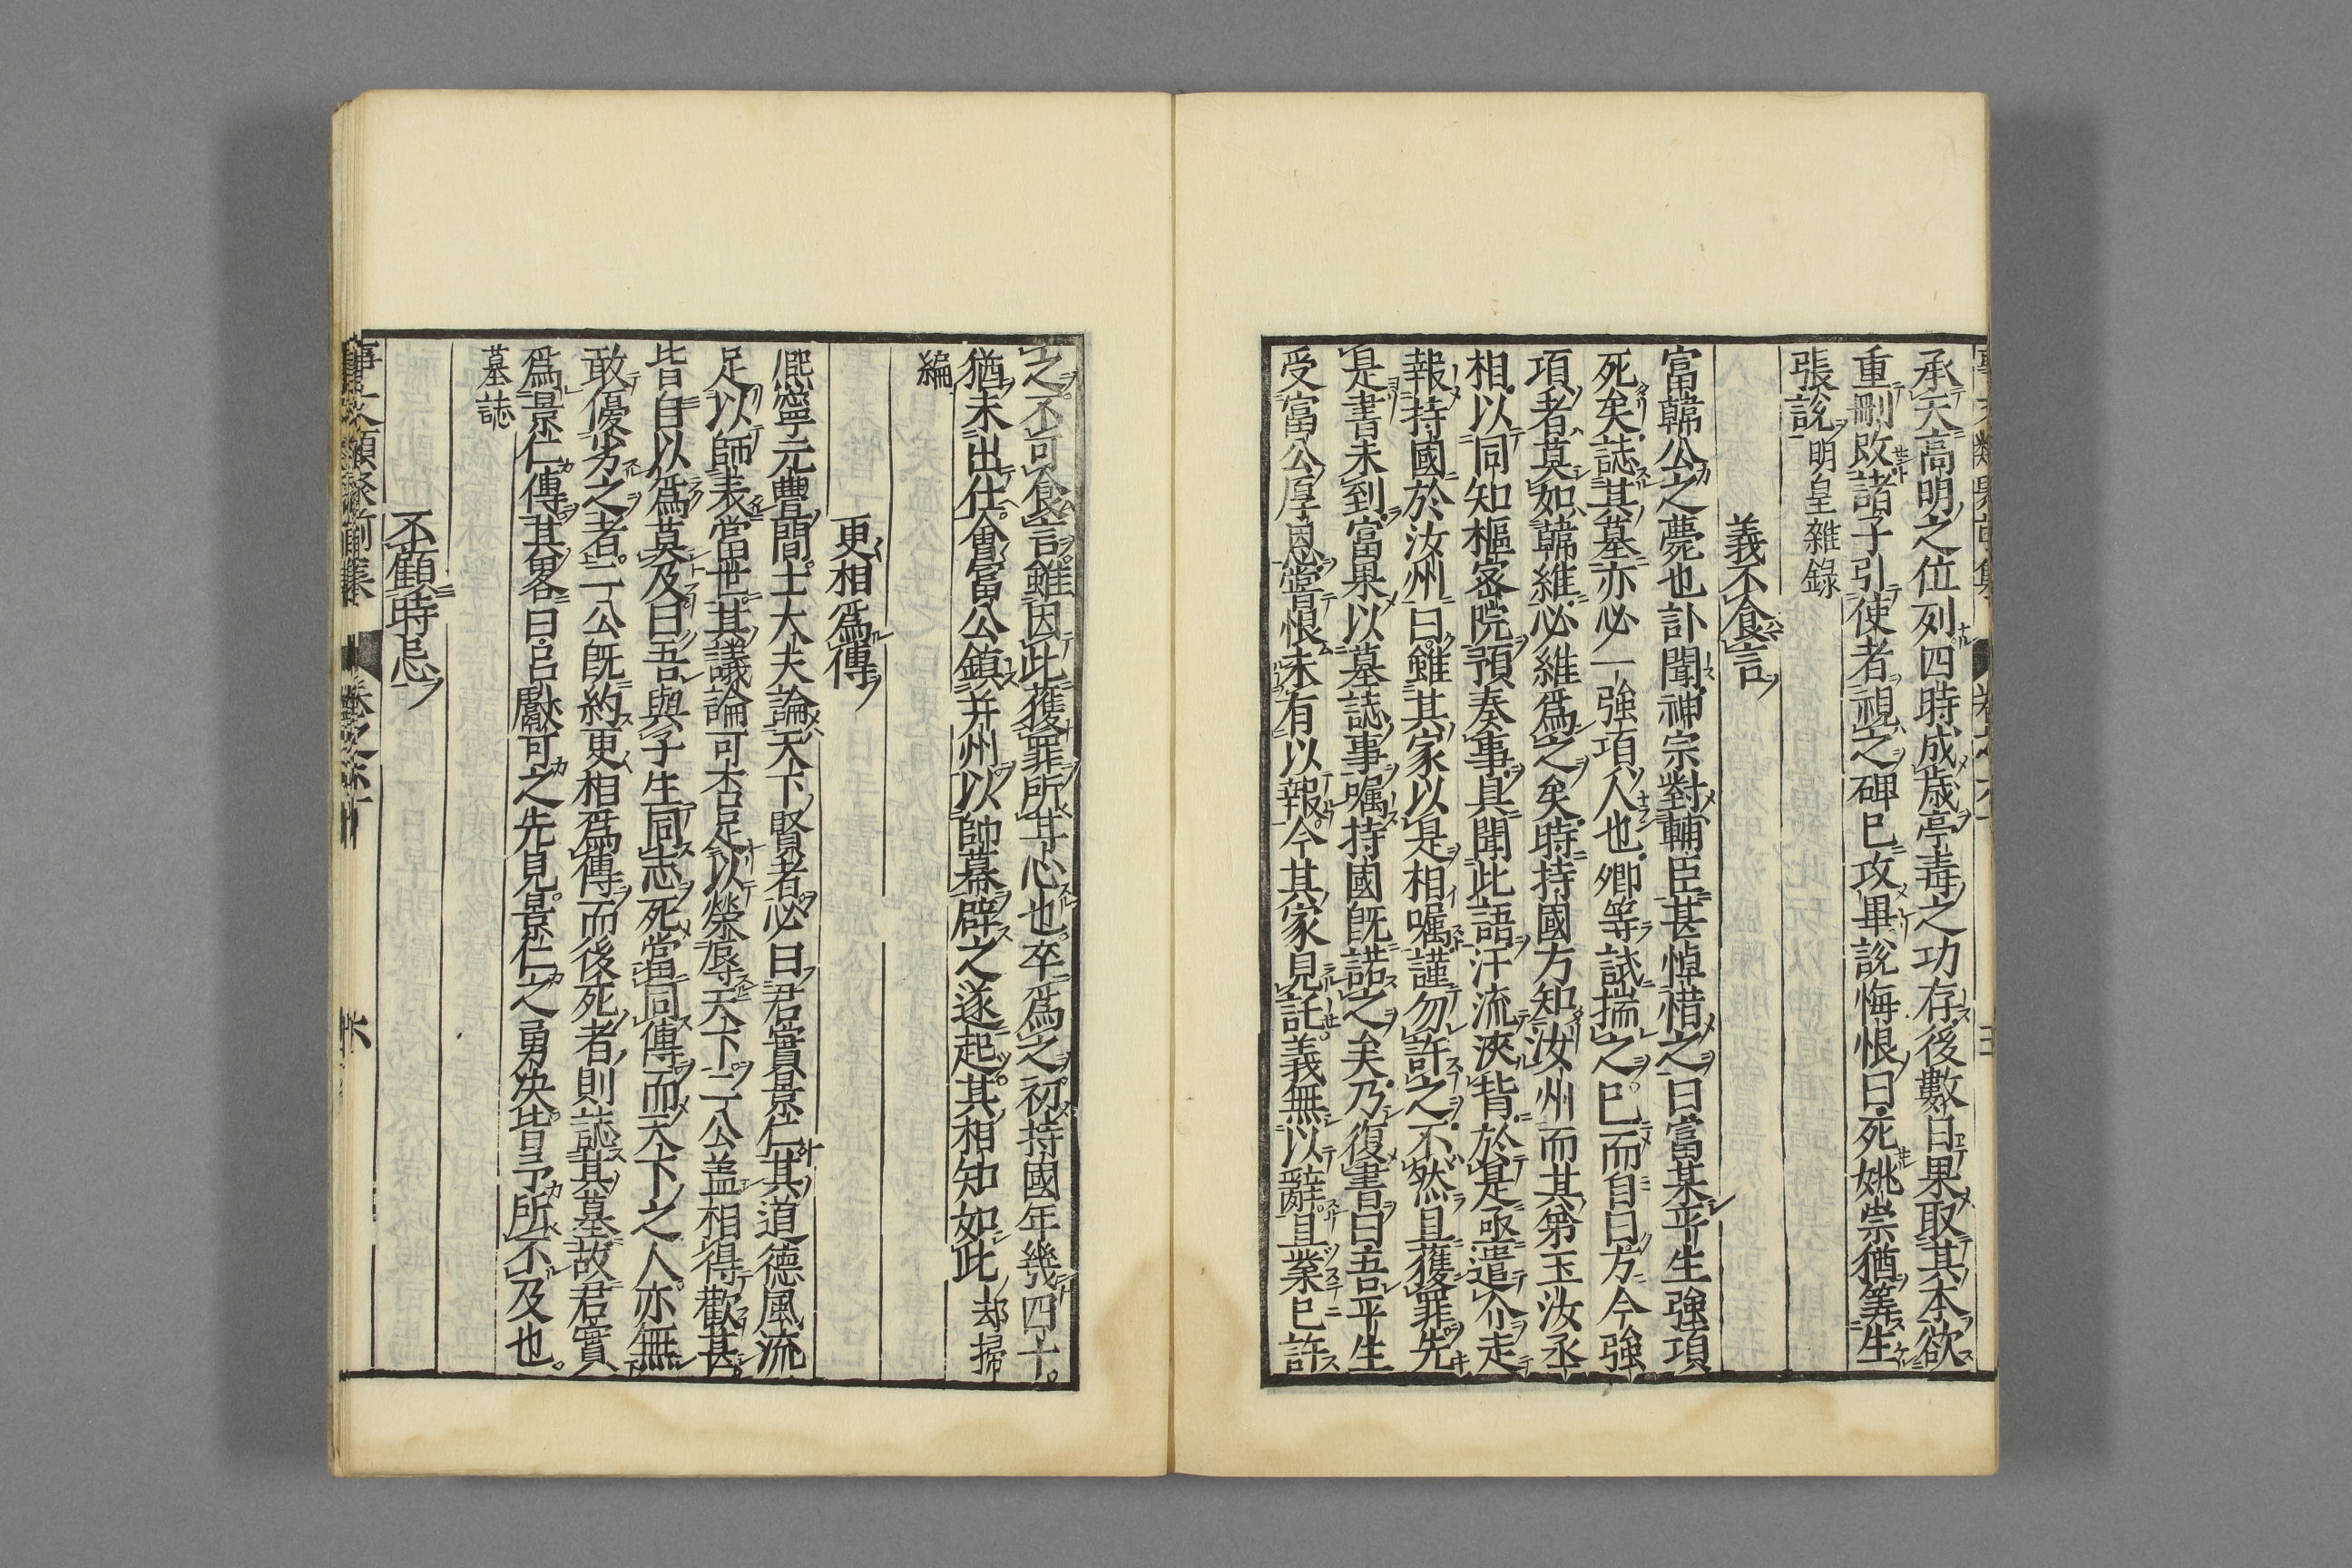 承天高明之位列四時成歳亭毒之功存後數日果取其本欲
重刪改諸子引使者視之碑已攻畢說悔恨曰死姚崇猶筭生
張說明皇雜錄
義不食言
富韓公之薨也訃聞神宗對輔臣甚悼惜之曰富某平生強項
死矣誌其墓亦必一強項人也卿等試揣之已而自曰方今強
項者莫如韓維必維爲之矣時持國方知汝州而其弟玉汝丞
相以同知樞密院預奏事具聞此語汗流浹背於是亟遣介走
報持國於汝州曰雖其家以是相囑謹勿許之不然且獲罪先
是書未到富果以墓誌事囑持國既諾之矣乃復書曰吾平生
受富公厚恩嘗恨未有以報今其家見託義無以辭且業已許
之不可食言雖因此獲罪所甘心也卒爲之初持國年幾四十
猶未出仕會富公鎮并州以帥幕辟之遂起其相知如此却掃
編
更相爲傳
熈寧元豊間士大夫論天下賢者必曰君實景仁其道德風流
足以師表當世其議論可否足以榮辱天下二公盖相得歡甚
皆自以爲莫及曰吾與子生同志死當同傳而天下之人亦無
敢優劣之者二公既約更相爲傳而後死者則誌其墓故君實
爲景仁傳其畧曰呂獻可之先見景仁之勇决皆予所不及也
墓誌
不顧時忌